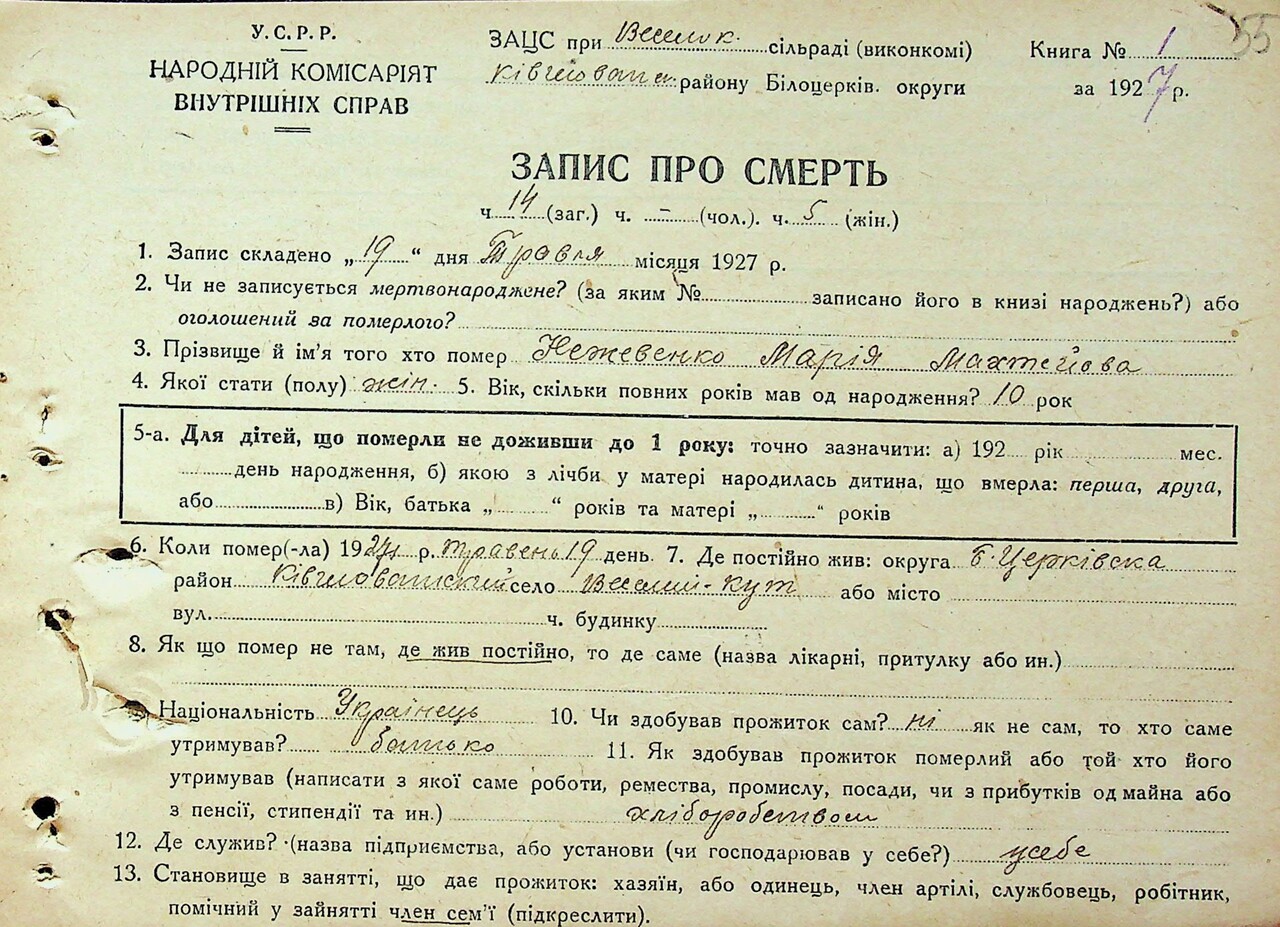 55
У.С.Р.Р.
НАРОДНІЙ КОМІСАРІЯТ
ВНУТРІШНІХ СПРАВ
ЗАЦС при Веселок. сільраді (виконкомі)
району Білоцерків. округи
Книга № 1
за 1927 р.
ЗАПИС ПРО СМЕРТЬ
ч. 14 (заг.) ч. – (чол.). ч. 5 (жін.)
1. Запис складено „19“ дня Травля місяця 1927 р.
2. Чи не записується мертвонароджене? (за яким № записано його в книзі народжень?) або
оголошений за померлого?
3. Прізвище й ім'я того хто помер Нежевенко Марія Махтейова
4. Якої стати (полу) жін. 5. Вік, скільки повних років мав од народження? 10 рок
5-а. Для дітей, що померли не доживши до 1 року: точно зазначити: а) 192 рік мес.
день народження, б) якою з лічби у матері народилась дитина, що вмерла: перша, друга,
або в) Вік, батька „ “ років та матері „ “ років
6. Коли помер(-ла) 1927 р. травень 19 день. 7. Де постійно жив: округа Б.Церківска
район село Веселий-Кут або місто
вул. ч. будинку
8. Як що помер не там, де жив постійно, то де саме (назва лікарні, притулку або ин.)
Національність Українець 10. Чи здобував прожиток сам? ні як не сам, то хто саме
утримував? батько 11. Як здобував прожиток померлий або той хто його
утримував (написати з якої саме роботи, ремества, промислу, посади, чи з прибутків од майна або
з пенсії, стипендії та ин.) хліборобством
12. Де служив? (назва підприємства, або установи (чи господарював у себе?) усебе
13. Становище в занятті, що дає прожиток: хазяїн, або одинець, член артілі, службовець, робітник,
помічний у зайнятті член сем'ї (підкреслити).